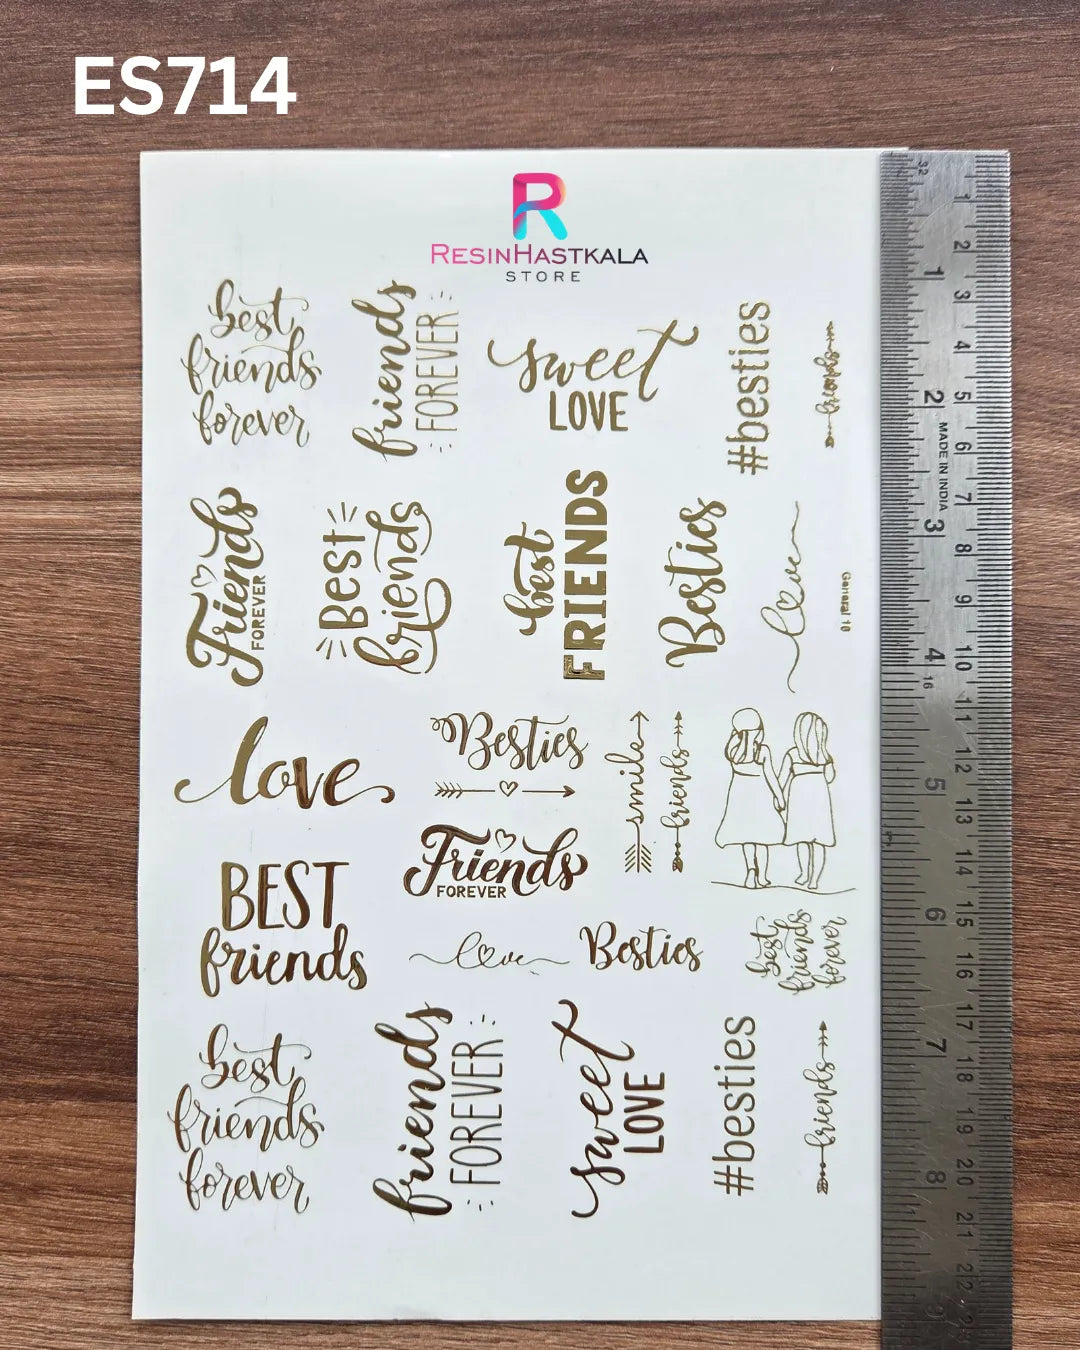 ES714
R
RESINHASTKALA
STORE
best
friends
forever
friends
FOREVER
sweet
LOVE
#besties
friends
Friends
FOREVER
Best
friends
best
FRIENDS
Besties
love
General 10
love
Besties
smile
friends
Friends
FOREVER
BEST
friends
love
Besties
best
friends
forever
best
friends
forever
friends
FOREVER
sweet
LOVE
#besties
friends
32
1
2
3
4
16
5
6
7
8
9
MADE IN INDIA
1
2
3
4
5
6
7
8
9
10
11
12
13
14
15
16
17
18
19
20
21
22